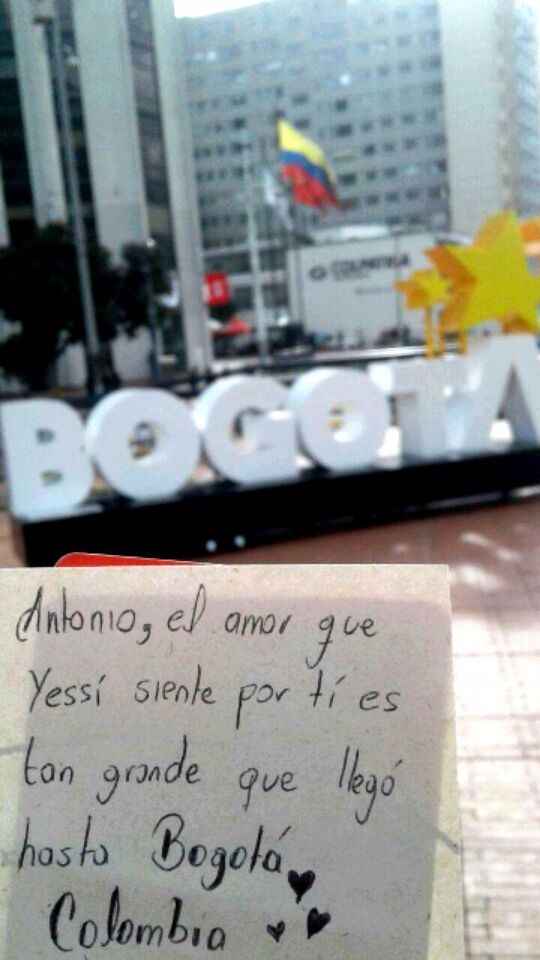 COLPATRIA
BOGOTÁ
Antonio, el amor que
Yessí siente por tí es
tan grande que llegó
hasta Bogotá
Colombia